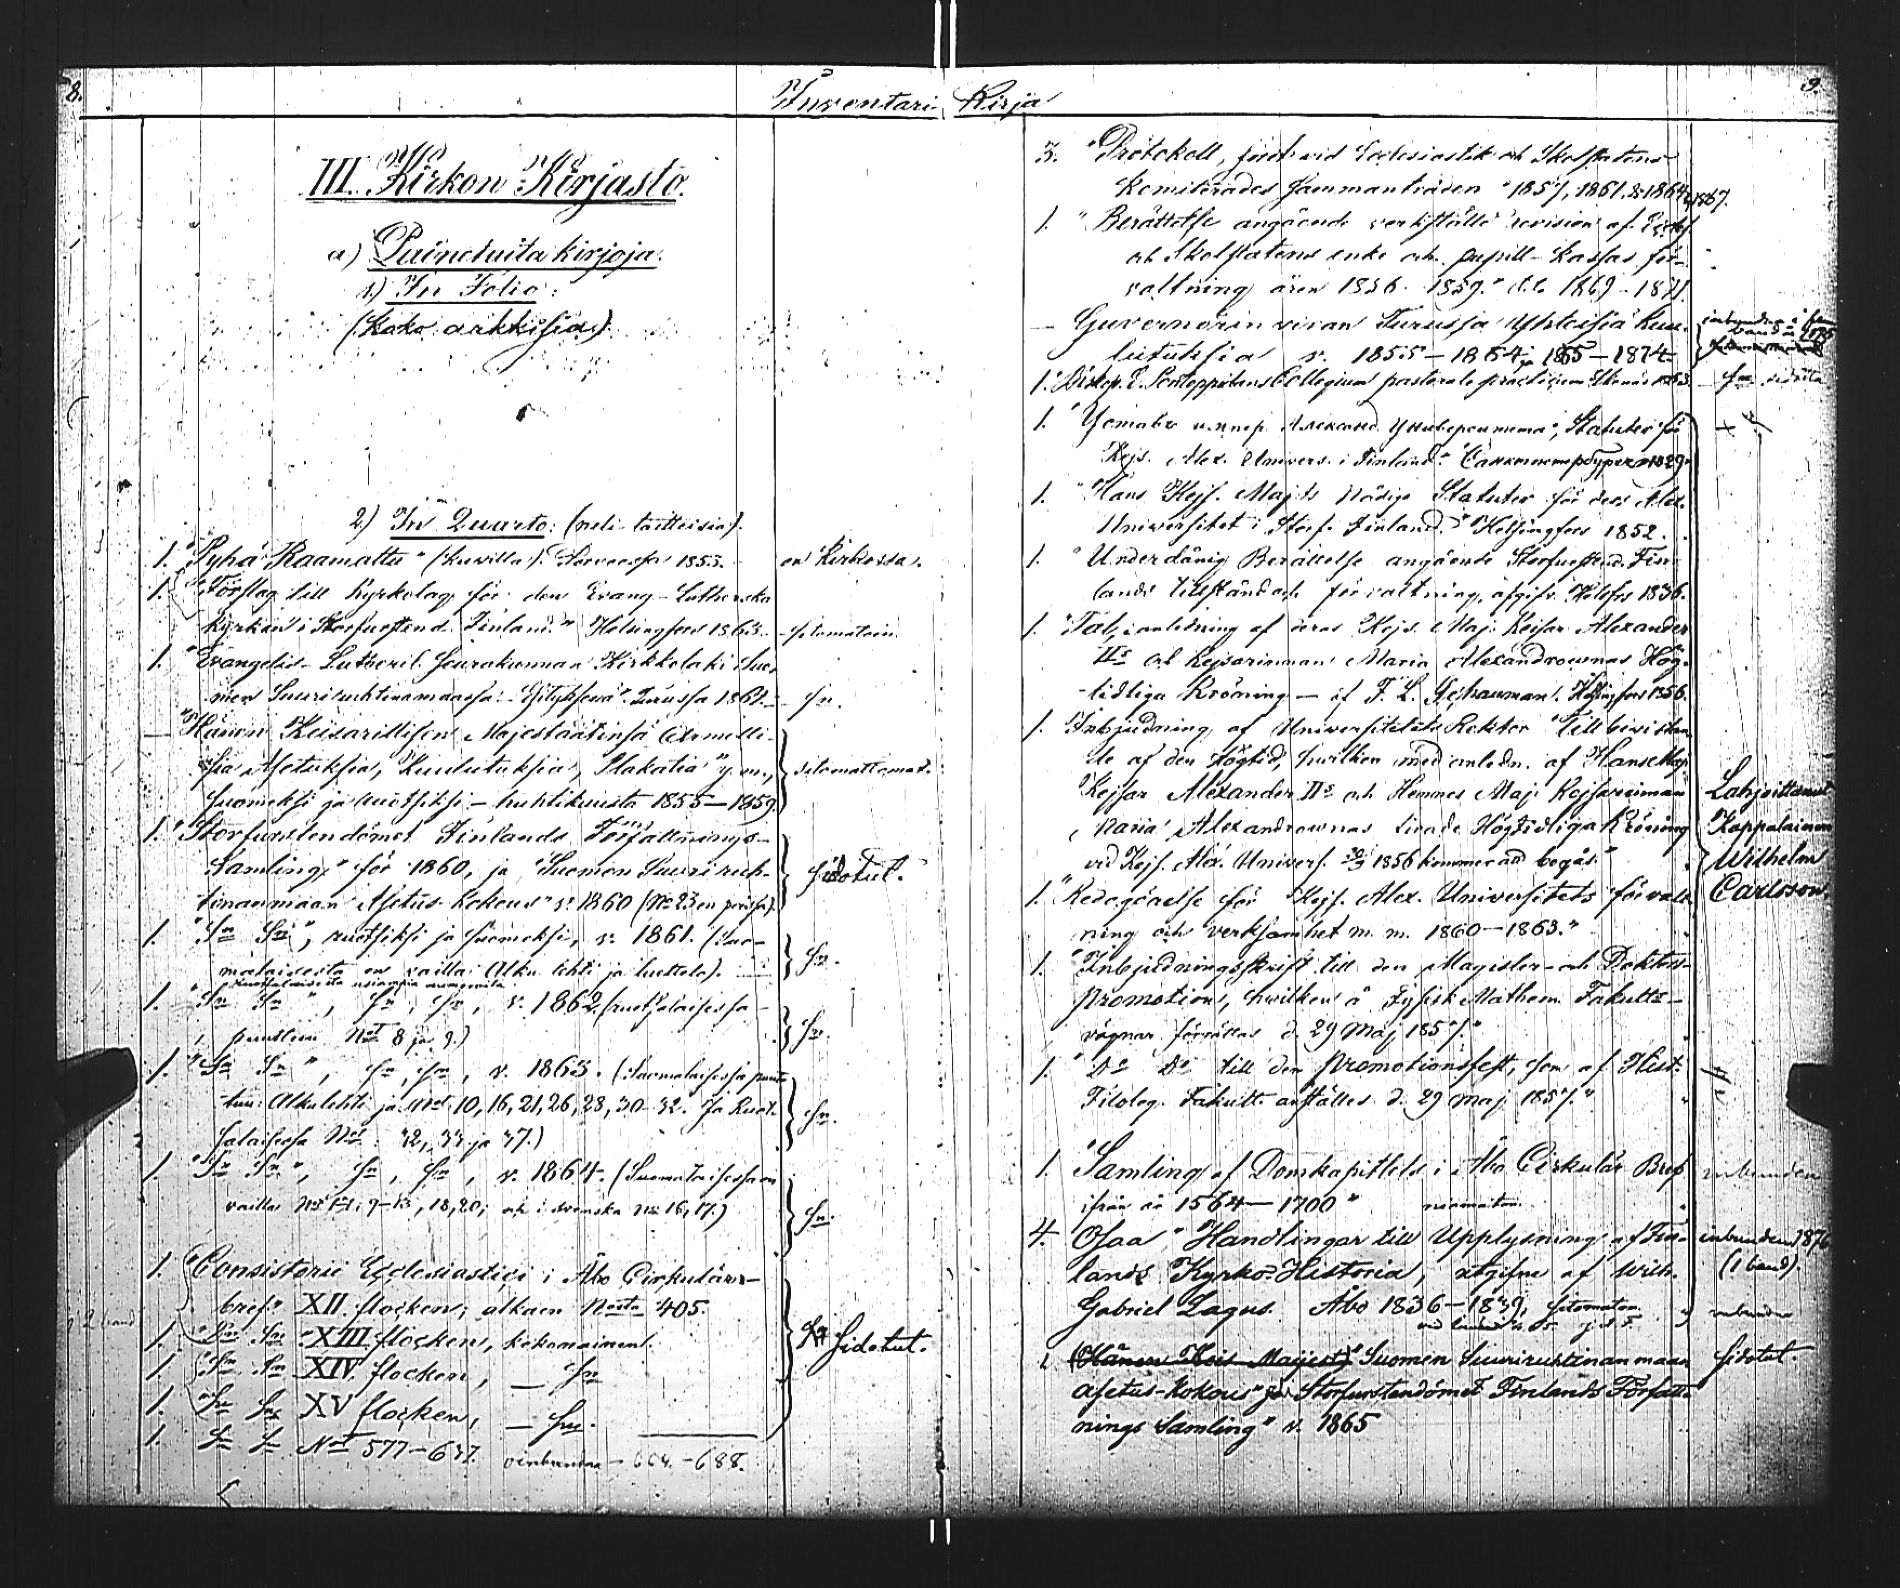 8.
Inventari Kirja
9.
III. Kirkon Kirjasto.
a) Painetuita kirjoja.
1.) In Folio:
(koko arkkisia.)
2.) In Quarto: (neli-taitteisia).
1. "Pyhä Raamattu" (kuvilla). Porvoossa 1853. on Kirkossa.
1. "Förslag till Kyrkolag för den Evang-Lutherska
kyrkan i Storfurstend. Finland." Helsingfors 1863. sitomatoin.
1. "Evangelis-Lutheril. Seurakunnan Kirkkolaki Suo-
men Suuriruhtinanmaassa. Esityksenä". Turussa 1864. Sn.
— "Hänen Keisarillisen Majesteetinsä Armolli-
sia Asetuksia, Kuulutuksia, Plakatia" y. m.,
Suomeksi ja ruotsiksi – huhtikuusta 1855–1859. sitomattomat.
1. "Storfurstendömet Finlands Författnings-
Samling," för 1860, ja "Suomen Suuriruh-
tinanmaan Asetus-Kokous" v. 1860 (No 23 en poissa). sidotut.
1. "Sn Sn", ruotsiksi ja suomeksi, v. 1861. (Suo-
malaisesta on vailla: Alku lehti ja luettelo). Sn.
1. "Sn Sn", Sn, Sn, v. 1862. (ruotsalaisessa
puuttuu Not 8 ja 9.) Sn.
1. "Sn Sn", Sn, Sn, v. 1863. (Suomalaisessa puut-
tuu: Alkulehti ja Not 10, 16, 21, 26, 28, 30–32. Ja Ruot-
salaisessa Not: 32, 33 ja 37.) Sn.
1. "Sn Sn", Sn, Sn, v. 1864. (Suomalaisessa on
vailla Not 1, 9–13, 18, 20; och i svenska No 16, 17.) Sn.
1. "Consistorii Ecclesiastici i Åbo Cirkulär-
bref." XII flocken; alkaen Nosta 405.
1. Sn Sn XIII flocken, kokonainen.
1. Sn Sn XIV flocken, — Sn
1. Sn Sn XV flocken, — Sn.
sidotut.
1. Sn Sn Not 577–637. oinbundna – 604.–688.
3. "Protokoll, fördt vid Ecclesiastik och Skolstatens
Komiterades sammanträden" 1857, 1861, & 1864, 1867.
1. "Berättelse angående verkställd revision af Eccles.
och Skolstatens enke och pupill-kassas för-
valtning åren 1856–1859." d:o 1869–1871.
— Guvernörin viran Turussa Yhteisiä kuu-
lutuksia v. 1855–1864 ja 1865–1874
1. Biskop E. Pontoppidans Collegium pastorale practicum
1. "Уставъ импер. Александ. Университета", Statuter för
Kejs. Alex. Univers. i Finland." Санктпетербургъ 1829.
1. "Hans Kejs. Maj:ts Nådiga Statuter för dess Alex.
Universitet i Storf. Finland." Helsingfors 1852.
1. "Underdånig Berättelse angående Storfurstend. Fin-
lands tillstånd och förvaltning, afgifv. Helsfrs 1836.
1. "Tal, i anledning af deras Kejs. Maj: Kejsar Alexander
II:s och Kejsarinnan Maria Alexandrownas Hög-
tidliga Kröning – af F. L. Schauman. Helsingfors 1856.
1. "Inbjudning af Universitetets Rektor till bevistan-
de af den Högtid, hvilken med anledn. af Hans Maj:
Kejsar Alexander II:s och Hennes Maj: Kejsarinnan
Maria Alexandrownas timade Högtidliga Kröning
vid Kejs. Alex. Univers. 1856 kommer att begås."
1. "Redogörelse för Kejs. Alex. Universitets förvalt-
ning och verksamhet m. m. 1860–1863."
1. "Inbjudningsskrift till den Magister- och Doktors-
promotion, hvilken å Fysisk Mathem. Fakultets-
vägnar förrättas d. 29 Maj 1857."
1. "Do Do till den Promotionsfest, som af Hist:
Filolog. Fakult. anställes d. 29 maj 1857."
Lahjoittanut
Kappalainen
Wilhelm
Carlsson.
1. "Samling af Domkapitlets i Åbo Cirkulär Bref
ifrån år 1564–1700" inbunden
4. Osaa "Handlingar till Upplysning af Fin-
lands Kyrko-Historia, utgifne af Wilh.
Gabriel Lagus. Åbo 1836–1839, sitomaton.
inbunden 1876
(1 band)
1. (Hänen Keis. Majest) "Suomen Suuriruhtinanmaan sidotut.
asetus-Kokous" ja "Storfurstendömet Finlands Författ-
nings Samling" v. 1865